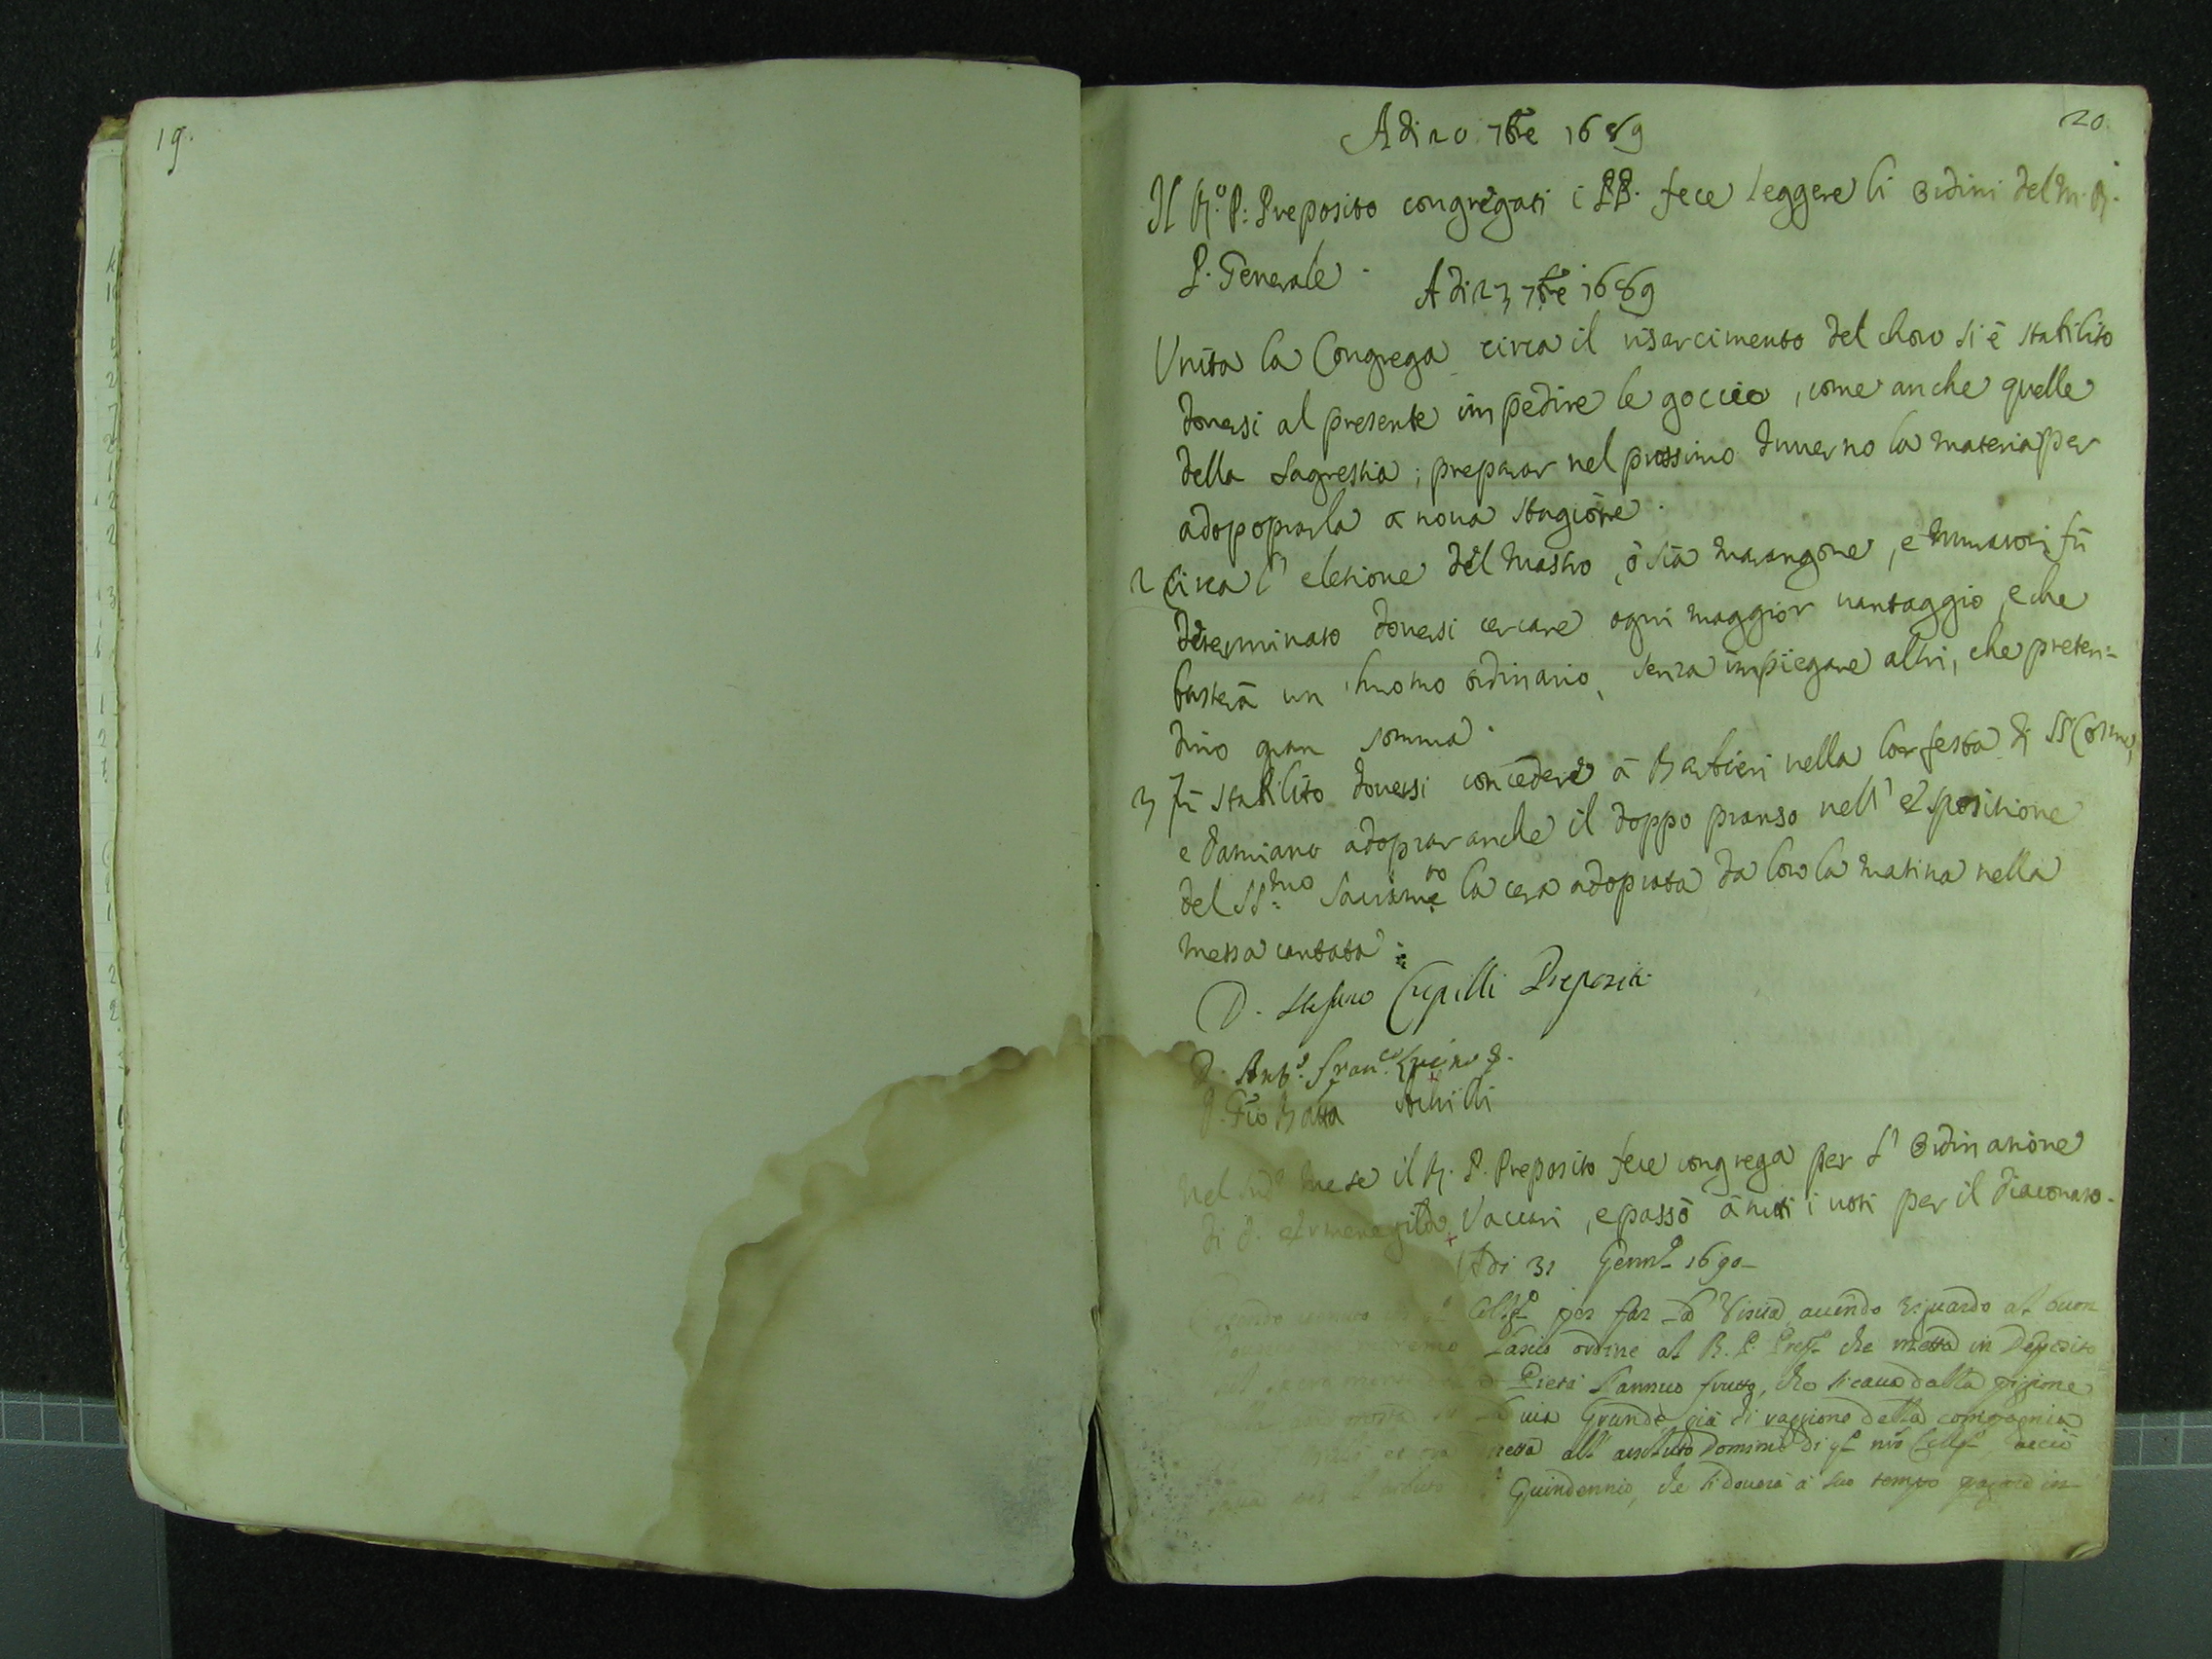 19.
20.
Adi 20 7bre 1689
Il R.º P. Preposito congregati i PP. fece leggere li ordini del M. R.
P. Generale.
Adi 23 7bre 1689
Unita la Congrega circa il risarcimento del choro si è stabilito
doversi al presente impedire le goccie, come anche quelle
della Sagrestia; preparar nel prossimo Inverno la materia per
adopoprarla a nova stagione.
2 Circa l'eletione del Mastro, ò sia marangone, e muratori fù
determinato doversi cercare ogni maggior vantaggio, e che
basterà un huomo ordinario, senza impiegare altri, che preten=
dino gran somma.
3 Fù stabilito doversi concedere à Barbieri nella lor festa di SS Cosmo,
e Damiano adoprar anche il doppo pranso nell'espositione
del SS.mo Sacrame.to la cera adoprata da loro la matina nella
messa cantata:
D. Stefano Cupilli Preposito
D. Ant.º Fran.co
D. Gio Batta Achilli
Nel sud.º mese il R. P. Preposito fece congrega per l'ordinatione
di D. Ermenegildo Vaccari, e passò à tutti i voti per il diaconato.
Adi 31 Genn.º 1690
Essendo venuto in q.º Coll.º per far la Visita, avendo riguardo al buon
lascio ordine al R. P. Prep.º che metta in Deposito
Pietà l'annuo frutto, che si cava dalla pigione
via Grande già di raggione della compagnia
all'assoluto Dominio di q.º nro Coll.º, acciò
Quindennio, che si doverà à suo tempo pagare in